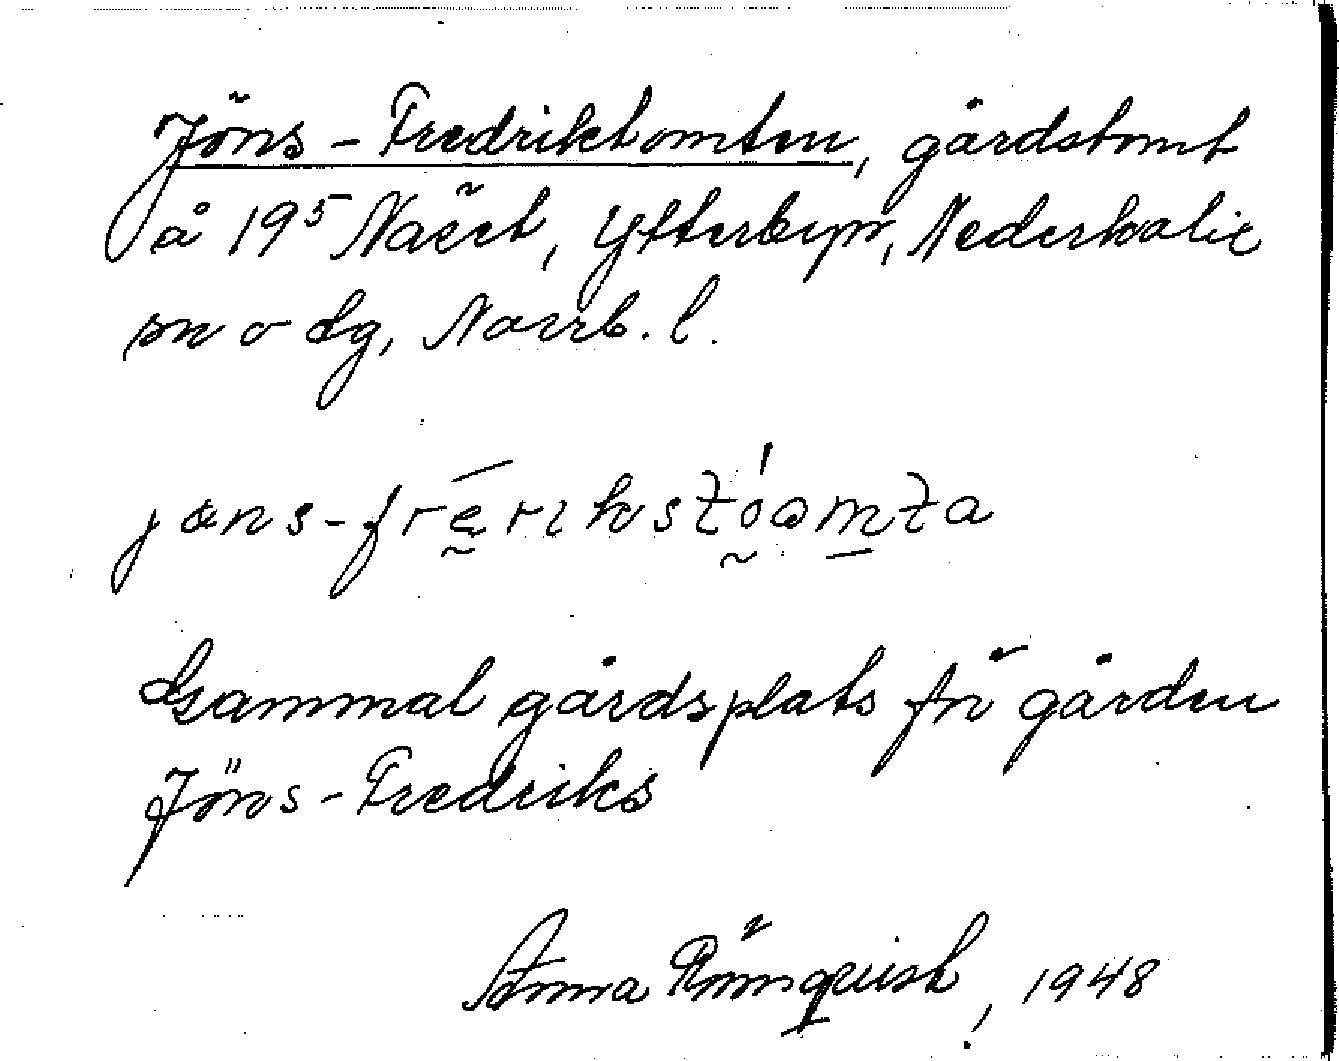 Jöns-Fredriktomten, gårdstomt
å 19⁵ Näset, Ytterbyn, Nederkalix
sn o dg, Norrb. l.
jøns-frērikstóomta
Gammal gårdsplats för gården
Jöns-Fredriks
Anna Rönnquist, 1948